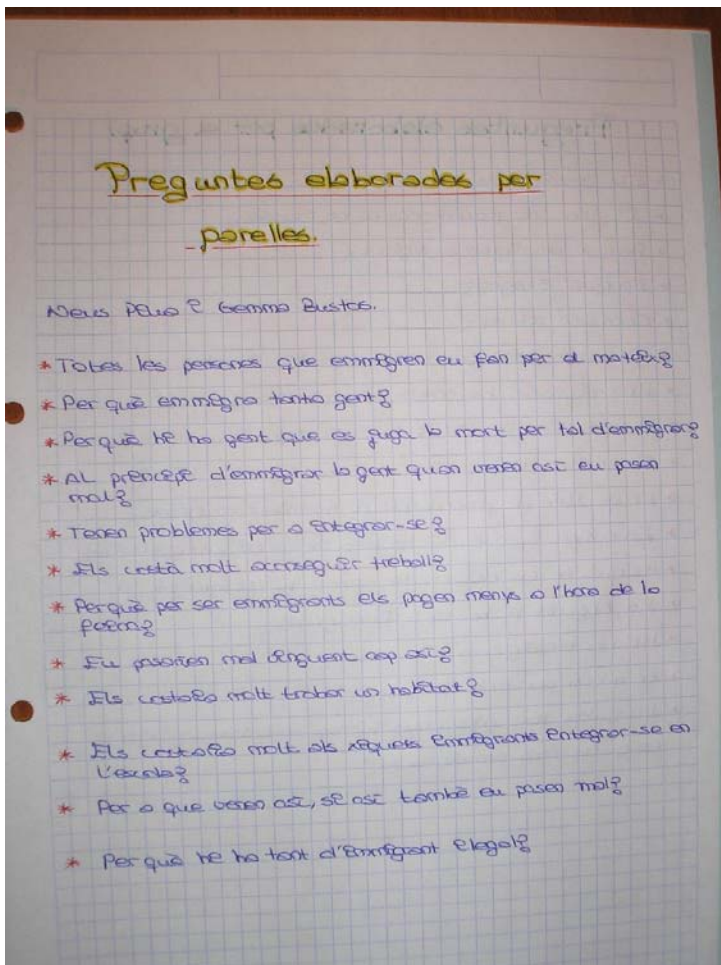 Preguntes elaborades per
parelles.
Neus Peño i Gemma Bustos.
* Totes les persones que emmigren eu fan per el mateix?
* Per què emmigra tanta gent?
* Perquè hi ha gent que es juga la mort per tal d'emmigrar?
* Al principi d'emmigrar la gent quan venen así eu pasen
mal?
* Tenen problemes per a integrar-se?
* Els costà molt aconseguir treball?
* Perquè per ser emmigrants els pagen menys a l'hora de la
faena?
* Eu pasarien mal vinguent cap así?
* Els costaria molt trobar un habitat?
* Els costaria molt als xiquets inmigrants integrar-se en
l'escola?
* Per a que venen así, si así també eu pasen mal?
* Per què hi ha tant d'inmigrant ilegal?